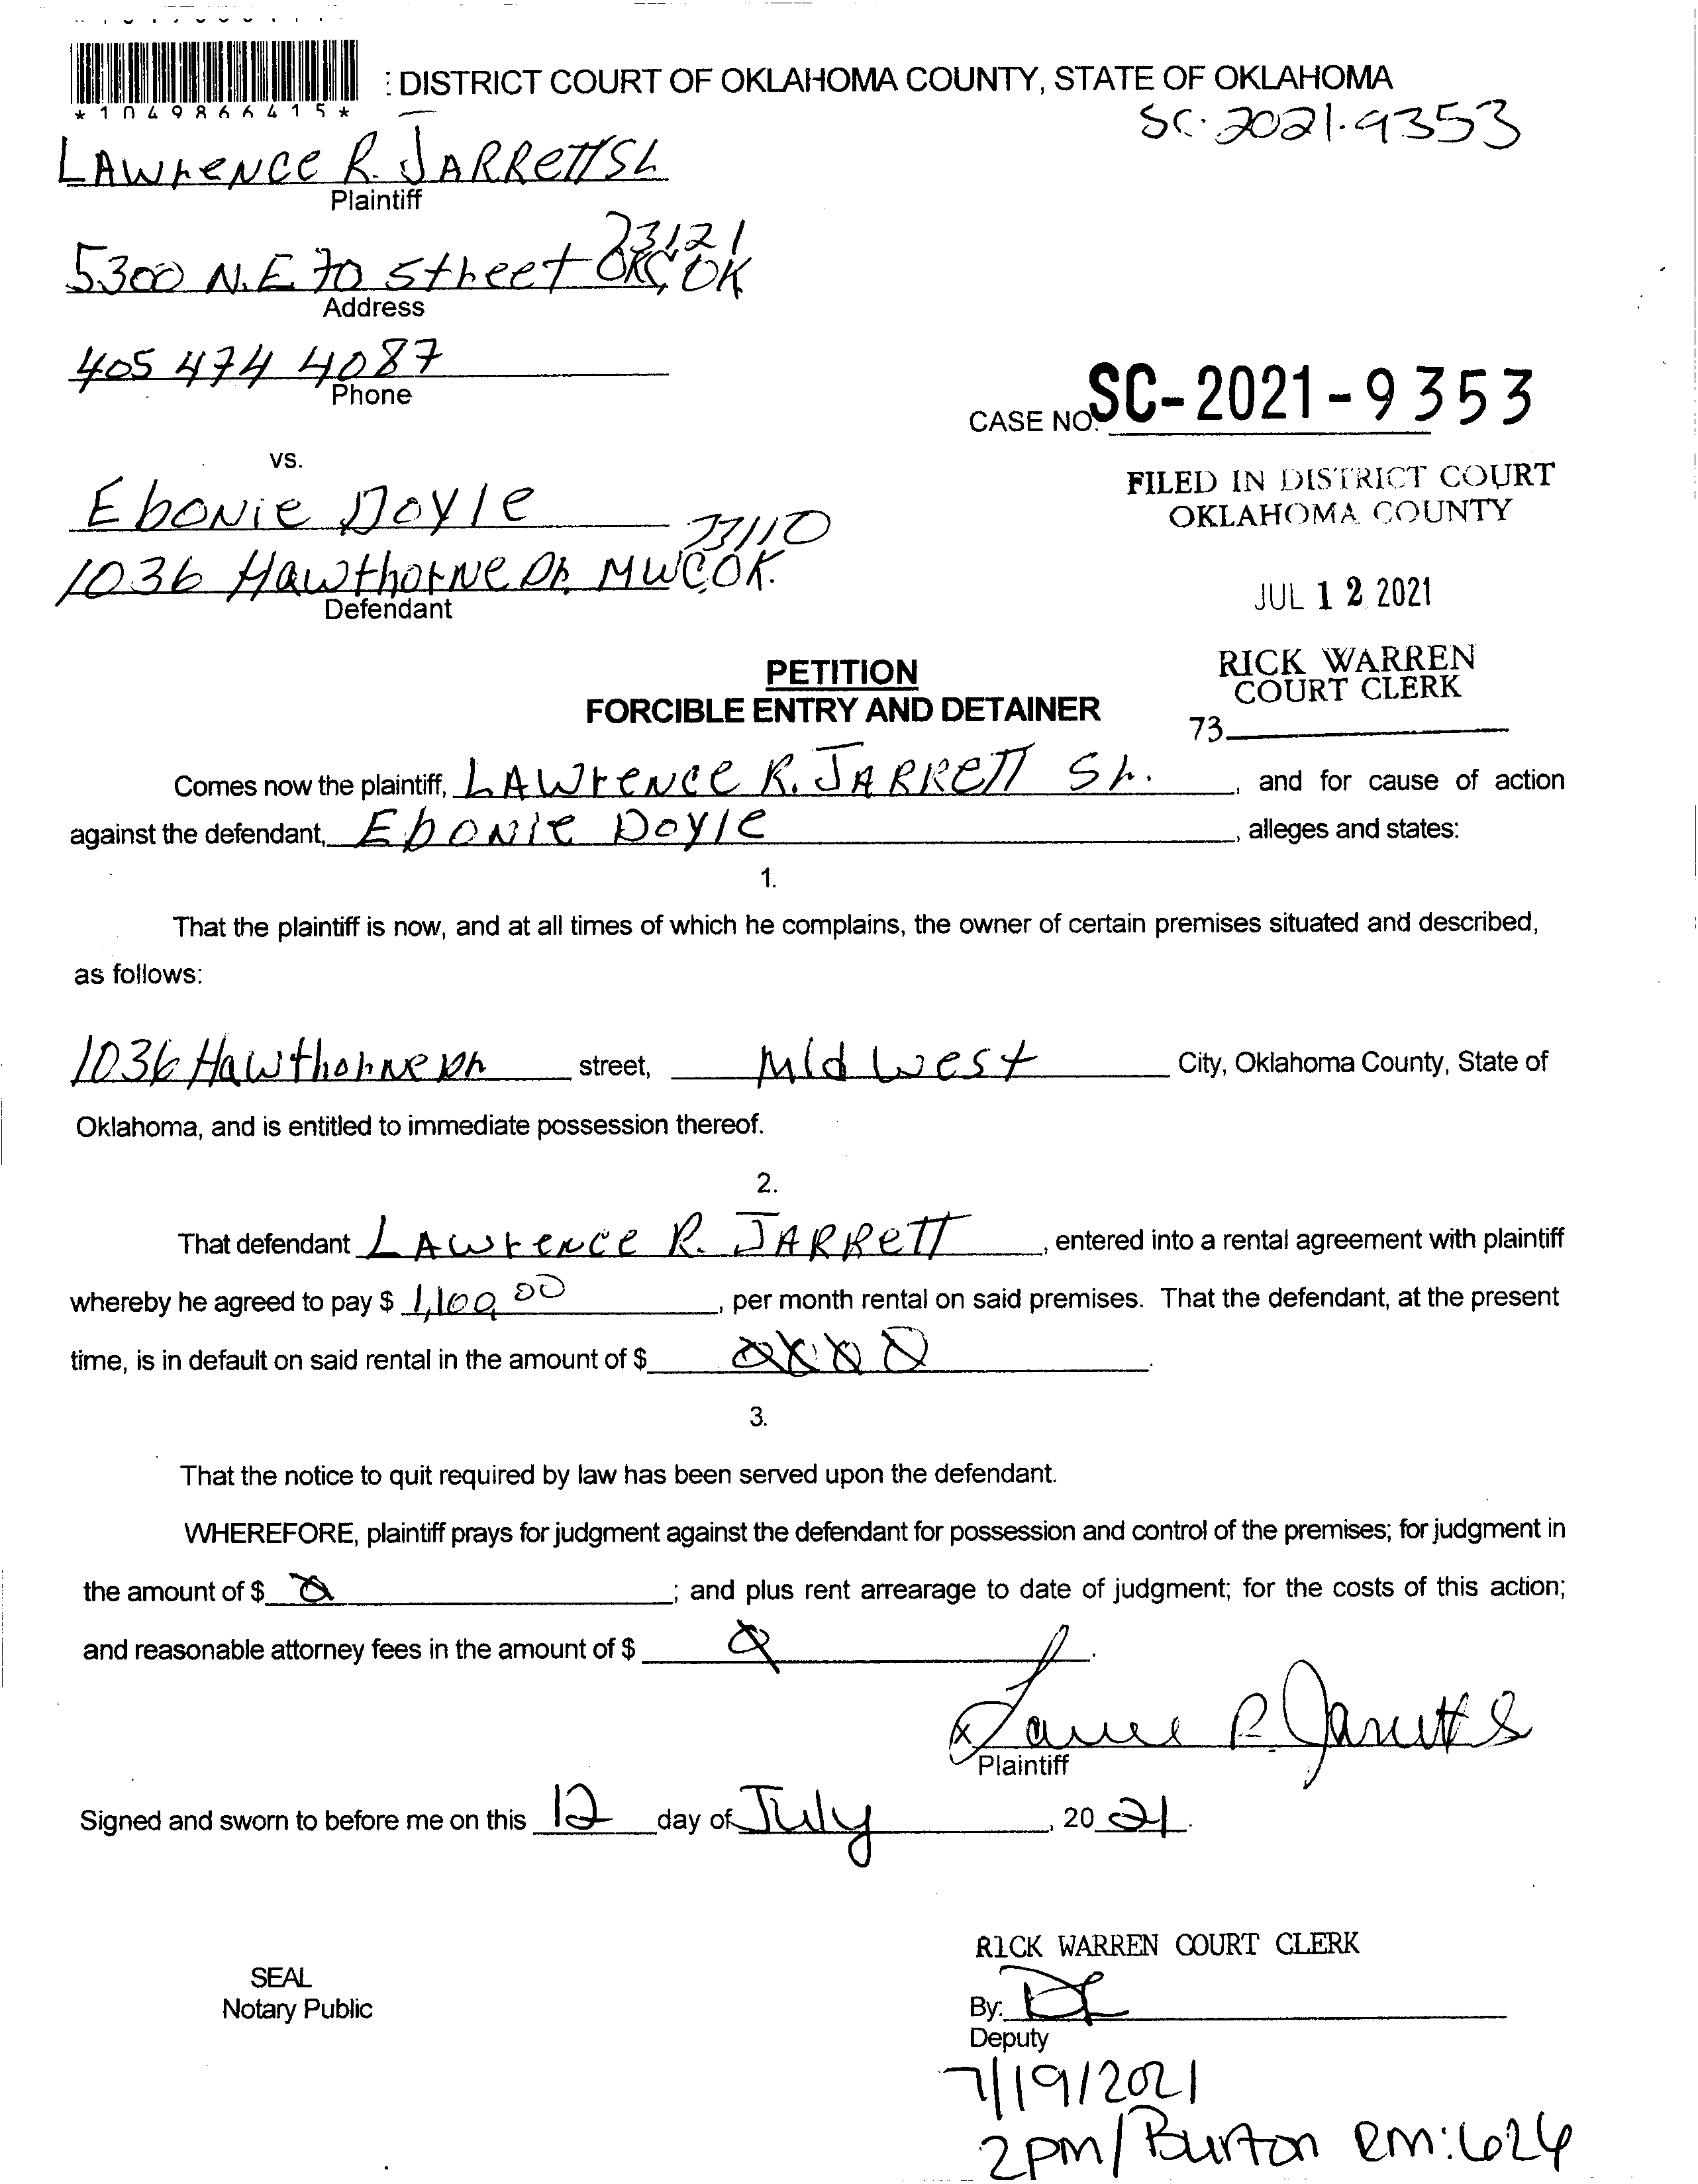 *1049866415*
: DISTRICT COURT OF OKLAHOMA COUNTY, STATE OF OKLAHOMA
SC-2021-9353
LAWrence R. JARRETT SR
Plaintiff
73121
5300 N.E 70 street OKC, OK
Address
405 474 4087
Phone
CASE NO. SC-2021-9353
vs.
FILED IN DISTRICT COURT
OKLAHOMA COUNTY
Ebonie Doyle
73110
1036 Hawthorne Dr. MWC OK.
Defendant
JUL 12 2021
RICK WARREN
COURT CLERK
73
PETITION
FORCIBLE ENTRY AND DETAINER
Comes now the plaintiff, LAWrence R. JARRETT Sr. , and for cause of action
against the defendant, Ebonie Doyle , alleges and states:
1.
That the plaintiff is now, and at all times of which he complains, the owner of certain premises situated and described,
as follows:
1036 Hawthorne Dr street, Midwest City, Oklahoma County, State of
Oklahoma, and is entitled to immediate possession thereof.
2.
That defendant LAWrence R. JARRETT , entered into a rental agreement with plaintiff
whereby he agreed to pay $ 1,100,00 , per month rental on said premises. That the defendant, at the present
time, is in default on said rental in the amount of $ .
3.
That the notice to quit required by law has been served upon the defendant.
WHEREFORE, plaintiff prays for judgment against the defendant for possession and control of the premises; for judgment in
the amount of $ 0 ; and plus rent arrearage to date of judgment; for the costs of this action;
and reasonable attorney fees in the amount of $ 0 .
x Lawrence R. Jarrett S
Plaintiff
Signed and sworn to before me on this 12 day of July , 20 21.
RICK WARREN COURT CLERK
SEAL
Notary Public
By: DL
Deputy
7/19/2021
2pm/Burton RM:624